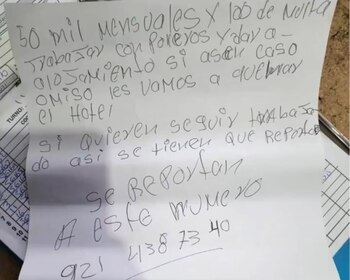 50 mil mensuales X 100 de Multa
trabasar con poleros y dar a-
alosamiento si asen caso
omiso les vamos a quemar
el Hotel
si quieren seguir trabasan
do asi se tienen que Reporta
se Reportan
A este numero
921 438 73 40